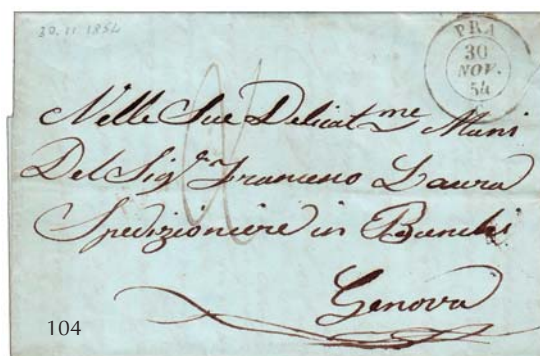 30.11.1854
PRA
30
NOV.
54
Nelle Sue Delicat.me Mani
Del Sig.r Francesco Laura
Spedizioniere in Banchi
Genova
104